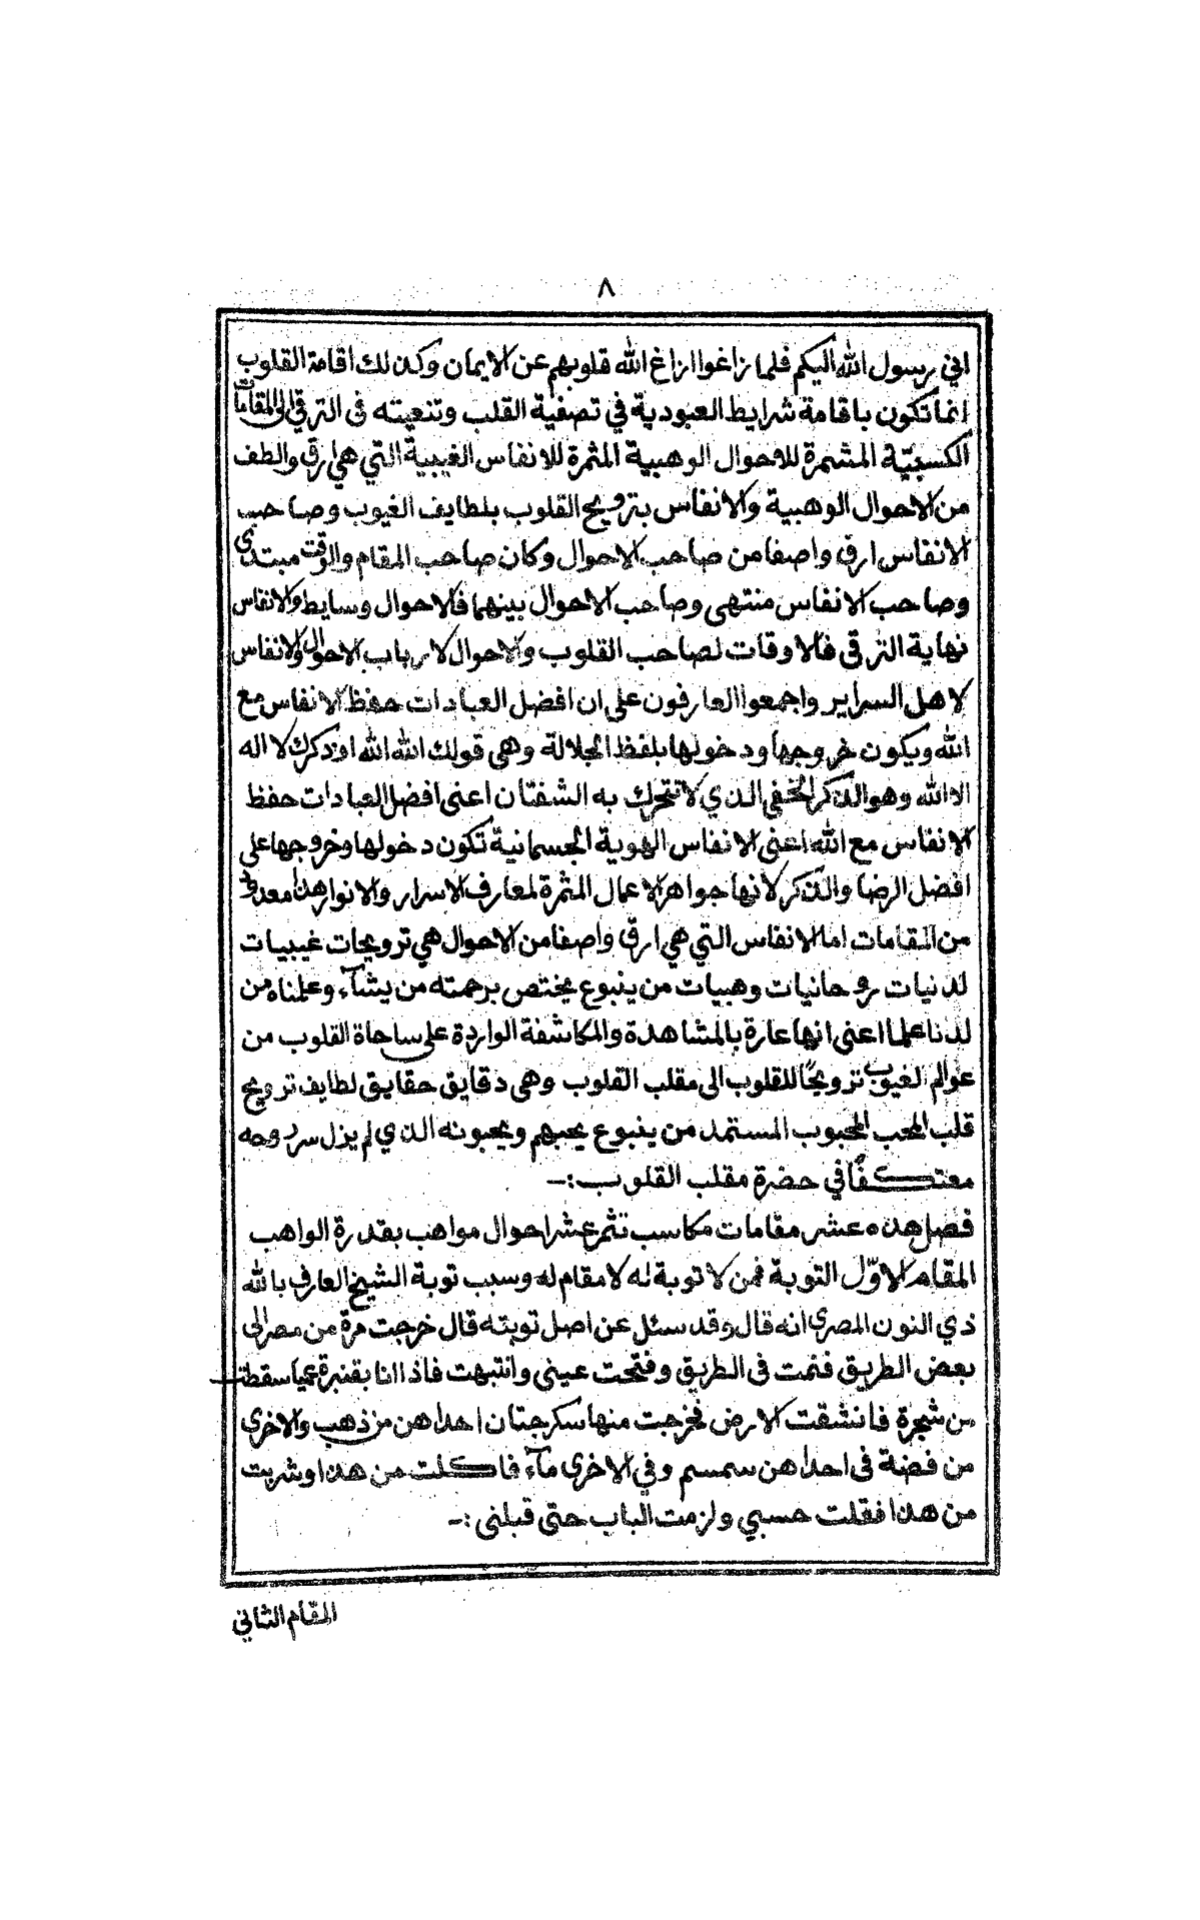 ٨
اني رسول الله اليكم فلما زاغوا ازاغ الله قلوبهم عن الايمان وكذلك اقامة القلوب
انما تكون باقامة شرايط العبودية في تصفية القلب وتنعيته في الترقي الى المقامات
الكسبيّة المشمرة للاحوال الوهبية المثمرة للانفاس الغيبية التي هي ارق والطف
من الاحوال الوهبية والانفاس بترويح القلوب بلطايف الغيوب وصاحب
الانفاس ارق واصفا من صاحب الاحوال وكان صاحب المقام والوقت مبتدي
وصاحب الانفاس منتهى وصاحب الاحوال بينهما فالاحوال وسايط والانفاس
نهاية الترقي فالاوقات لصاحب القلوب والاحوال لارباب الاحوال والانفاس
لاهل السراير واجمعوا العارفون على ان افضل العبادات حفظ الانفاس مع
الله ويكون خروجها ودخولها بلفظ الجلالة وهي قولك الله الله او ذكرك لا اله
الا الله وهو الذكر الخفي الذي لا تتحرك به الشفتان اعنى افضل العبادات حفظ
الانفاس مع الله اعنى الانفاس الهوية الجسمانية تكون دخولها وخروجها على
افضل الرضا والذكر لانها جواهر الاعمال المثمرة لمعارف الاسرار والانوار هذا معدود
من المقامات اما الانفاس التي هي ارق واصفا من الاحوال هي ترويحات غيبيات
لدنيات روحانيات وهبيات من ينبوع يختص برحمته من يشآء وعلمناه من
لدنا علما اعنى انها عارة بالمشاهدة والمكاشفة الواردة على ساحاة القلوب من
عوالم الغيوب ترويحًا للقلوب الى مقلب القلوب وهي دقايق حقايق لطايف ترويح
قلب المحب المحبوب المستمد من ينبوع يحبهم ويحبونه الذي لم يزل سر روحه
معتكفًا في حضرة مقلب القلوب :ـ
فصل هذه عشر مقامات مكاسب تثمر عشر احوال مواهب بقدرة الواهب
المقام الاوّل التوبة فمن لا توبة له لا مقام له وسبب توبة الشيخ العارف بالله
ذي النون المصري انه قال وقد سئل عن اصل توبته قال خرجت مرة من مصر الى
بعض الطريق فنمت في الطريق وفتحت عيني وانتبهت فاذا انا بقنبرة عميا سقطت
من شجرة فانشقت الارض فخرجت منها سكرجتان احداهن من ذهب والاخرى
من فضة في احداهن سمسم وفي الاخرى مآء فاكلت من هذا وشربت
من هذا فقلت حسبي ولزمت الباب حتى قبلني :ـ
المقام الثاني